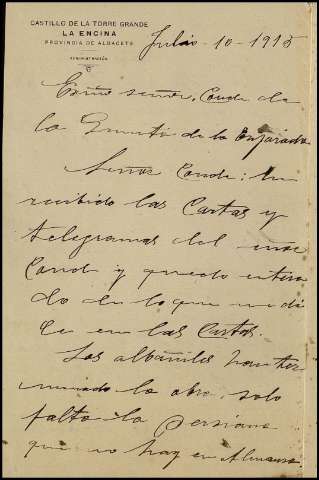 CASTILLO DE LA TORRE GRANDE
LA ENCINA
PROVINCIA DE ALBACETE
ADMINISTRACIÓN
Julio-10-1915
Exmo señor, Conde de
la Quinta de la Enjarada
Señor Conde: he
recibido las Cartas y
telegramas del señor
Conde y quedo entera
do de lo que me di
ce en las Cartas.
Los albañiles han ter
minado la obra, solo
falta la persiana
que no hay en Almansa